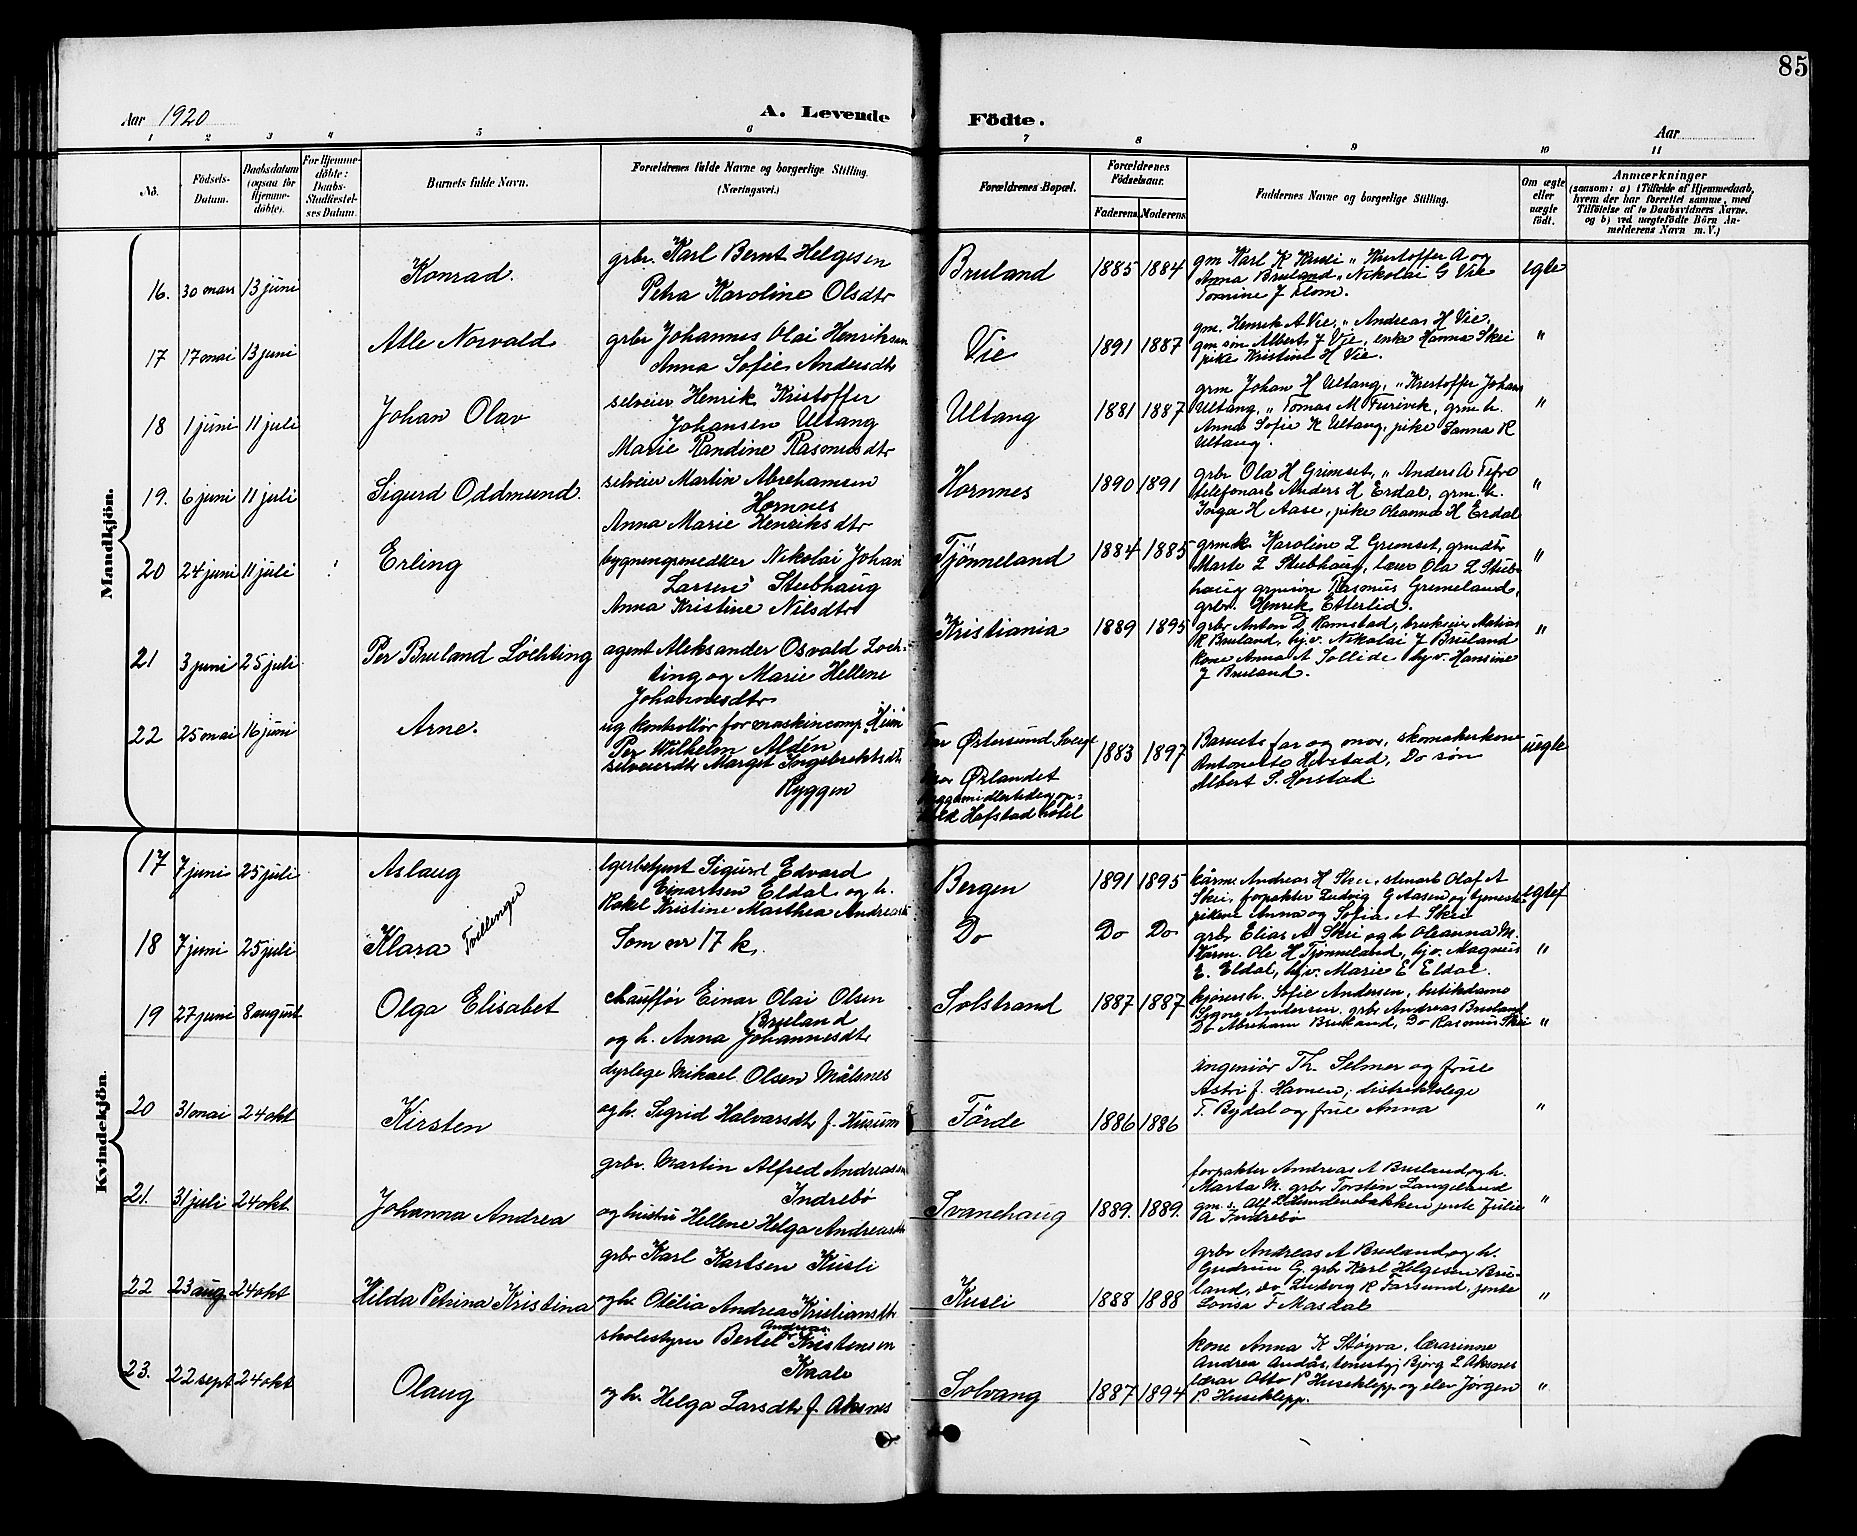 85
Aar 1920
A. Levende Födte.
Aar
1 2 3 4 5 6 7 8 9 10 11
No.
Födsels-Datum.
Daabsdatum (ogsaa for Hjemme-döbte).
For Hjemme-döbte: Daabs-Stadfæstel-ses Datum.
Barnets fulde Navn.
Forældrenes fulde Navne og borgerlige Stilling. (Næringsvei.)
Forældrenes Bopæl.
Forældrenes Födselsaar.
Faderens Moderens
Faddernes Navne og borgerlige Stilling.
Om ægte eller uægte födt.
Anmærkninger
(saasom: a) i Tilfælde af Hjemmedaab,
hvem der har forrettet samme, med
Tilföielse af to Daabsvidners Navne,
og b) ved uægtefödte Börn An-
melderens Navn m. V.)
Mandkjön.
16. 30 mars 13 juni
Konrad.
grbr. Karl Bernt Helgesen
Petra Karoline Olsdtr
Bruland
1885 1884
gm Karl K Kusli " Kristoffer A og
Anna Bruland " Nikolai G Vie
Tomine J Flom.
egte
17 17 mai 13 juni
Atle Norvald
grbr Johannes Olai Henriksen
Anna Sofie Andersdtr
Vie
1891 1887
gm. Henrik A Vie, " Andreas H Vie,
gm søn Albert J Vie, enke Hanna Skei
pike Kristine H Vie.
"
18 1 juni 11 juli
Johan Olav
selveier Henrik Kristoffer
Johansen Ultang
Marie Randine Rasmusdtr
Ultang
1881 1887
grm Johan H Ultang, " Kristoffer Johans
Ultang, " Tomas M Furevik, grm. h.
Anna Sofie K Ultang, pike Sanna R
Ultang.
"
19. 6 juni 11 juli
Sigurd Oddmund.
selveier Martin Abrahamsen
Hornnes
Anna Marie Henriksdtr
Hornnes
1890 1891
grbr Ola H Grimset, " Anders A Tefre
telefonarb Anders H Erdal, grm. h.
Inga H Aase, pike Oleanna H Erdal
"
20 24 juni 11 juli
Erling
bygningsnedker Nikolai Johan
Larsen Stubhaug
Anna Kristine Nilsdtr
Tjønneland
1884 1885
grmk. Karoline L Grimset, grmdtr
Marte L Stubhaug, lærer Ola L Stub-
haug grmsøn Rasmus Grimeland,
grbr. Henrik Etterlid.
"
21 3 juni 25 juli
Per Bruland Löchting
agent Aleksander Osvald Loch-
ting og Marie Hellene
Johannesdtr
Kristiania
1889 1895
grbr Anton D Ramstad, brukseier Matias
R Bruland, hj.v. Nikolai J Bruland
kone Anna A Sollide hj v. Hansine
J Bruland.
"
22 25 mai 16 juni
Arne.
ug kontrollör for maskincomp. "Heim"
Per Wilhelm Aldén
selveierdtr Marget Ingebrektsdtr
Ryggen
Far Østersund Sverige
Mor Ørlandet
Ryggen midlertidig op-
hold Hafstad hotel
1883 1897
Barnets far og mor, skomakerkone
Antonette Hovstad, Do søn
Albert S. Horstad
uegte
Kvindekjön.
17 7 juni 25 juli
Aslaug
Tvillinger
lgerbetjent Sigurd Edvard
Einartsen Eldal og h.
Rakel Kristine Marthea Andreasdtr
Bergen
1891 1895
kårm. Andreas H Skei, stenarb Olaf A
Skei, forpakter Ludvig G Aasen og tjeneste-
pikene Anna og Sofia A Skei
egtef
18 7 juni 25 juli
Klara
Som nr 17 k.
Do
Do Do
grbr Elias A Skei og h Oleanna M.
kårm. Ole H Tjønneland, hj.v. Magnus
E. Eldal, hj.v. Marie E Eldal.
"
19 27 juni 8 august
Olga Elisabet
chauffør Einar Olai Olsen
Bruland
og h. Anna Johannesdtr
Solstrand
1887 1887
kjørersh. Sofie Andersen, butikdame
Signe Andersen. grbr Andreas Bruland
Do Abraham Bruland, Do Rasmus Skei
"
20 31 mai 24 okt
Kirsten
dyrlege Mikael Olsen Målsnes
og h. Sigrid Halvarsdtr f. Husum
Förde
1886 1886
ingeniör Th. Selmer og frue
Astri f. Havnen, distriktslege
T. Bydal og frue Anna
"
21. 31 juli 24 okt
Johanna Andrea
grbr. Martin Alfred Andreassen
Indrebö
og hustru Hellene Helga Andreasdtr
Svanehaug
1889. 1889.
forpakter Andreas A Bruland, og h.
Marta M. grbr Torstin Langeland
gm. s. Alf L Lundenebakken jente Julie
A Indrebö
"
22 23 aug 24 okt
Hilda Petrina Kristina
grbr Karl Karlsen Kusli
og h. Otelia Andrea Kristiansdtr
Kusli
1888 1888
grbr Andreas A Bruland, og h.
Gudrun G. grbr Karl Helgesen Bru-
land, do Ludvig R Farsund, jente
Lovise F Masdal
"
23. 22 sept 24 okt
Olaug
skolestyrer Bertel Andreas Kristensen
Kaale
og h. Helga Larsdtr f. Aksnes
Solvang
1887 1894
kone Anna K Støyva, lærarinne
Andrea Andås, tenestgj Bjørg L Aksnes
lærar Otto P Huseklepp og elev Jørgen
P. Huseklepp.
"